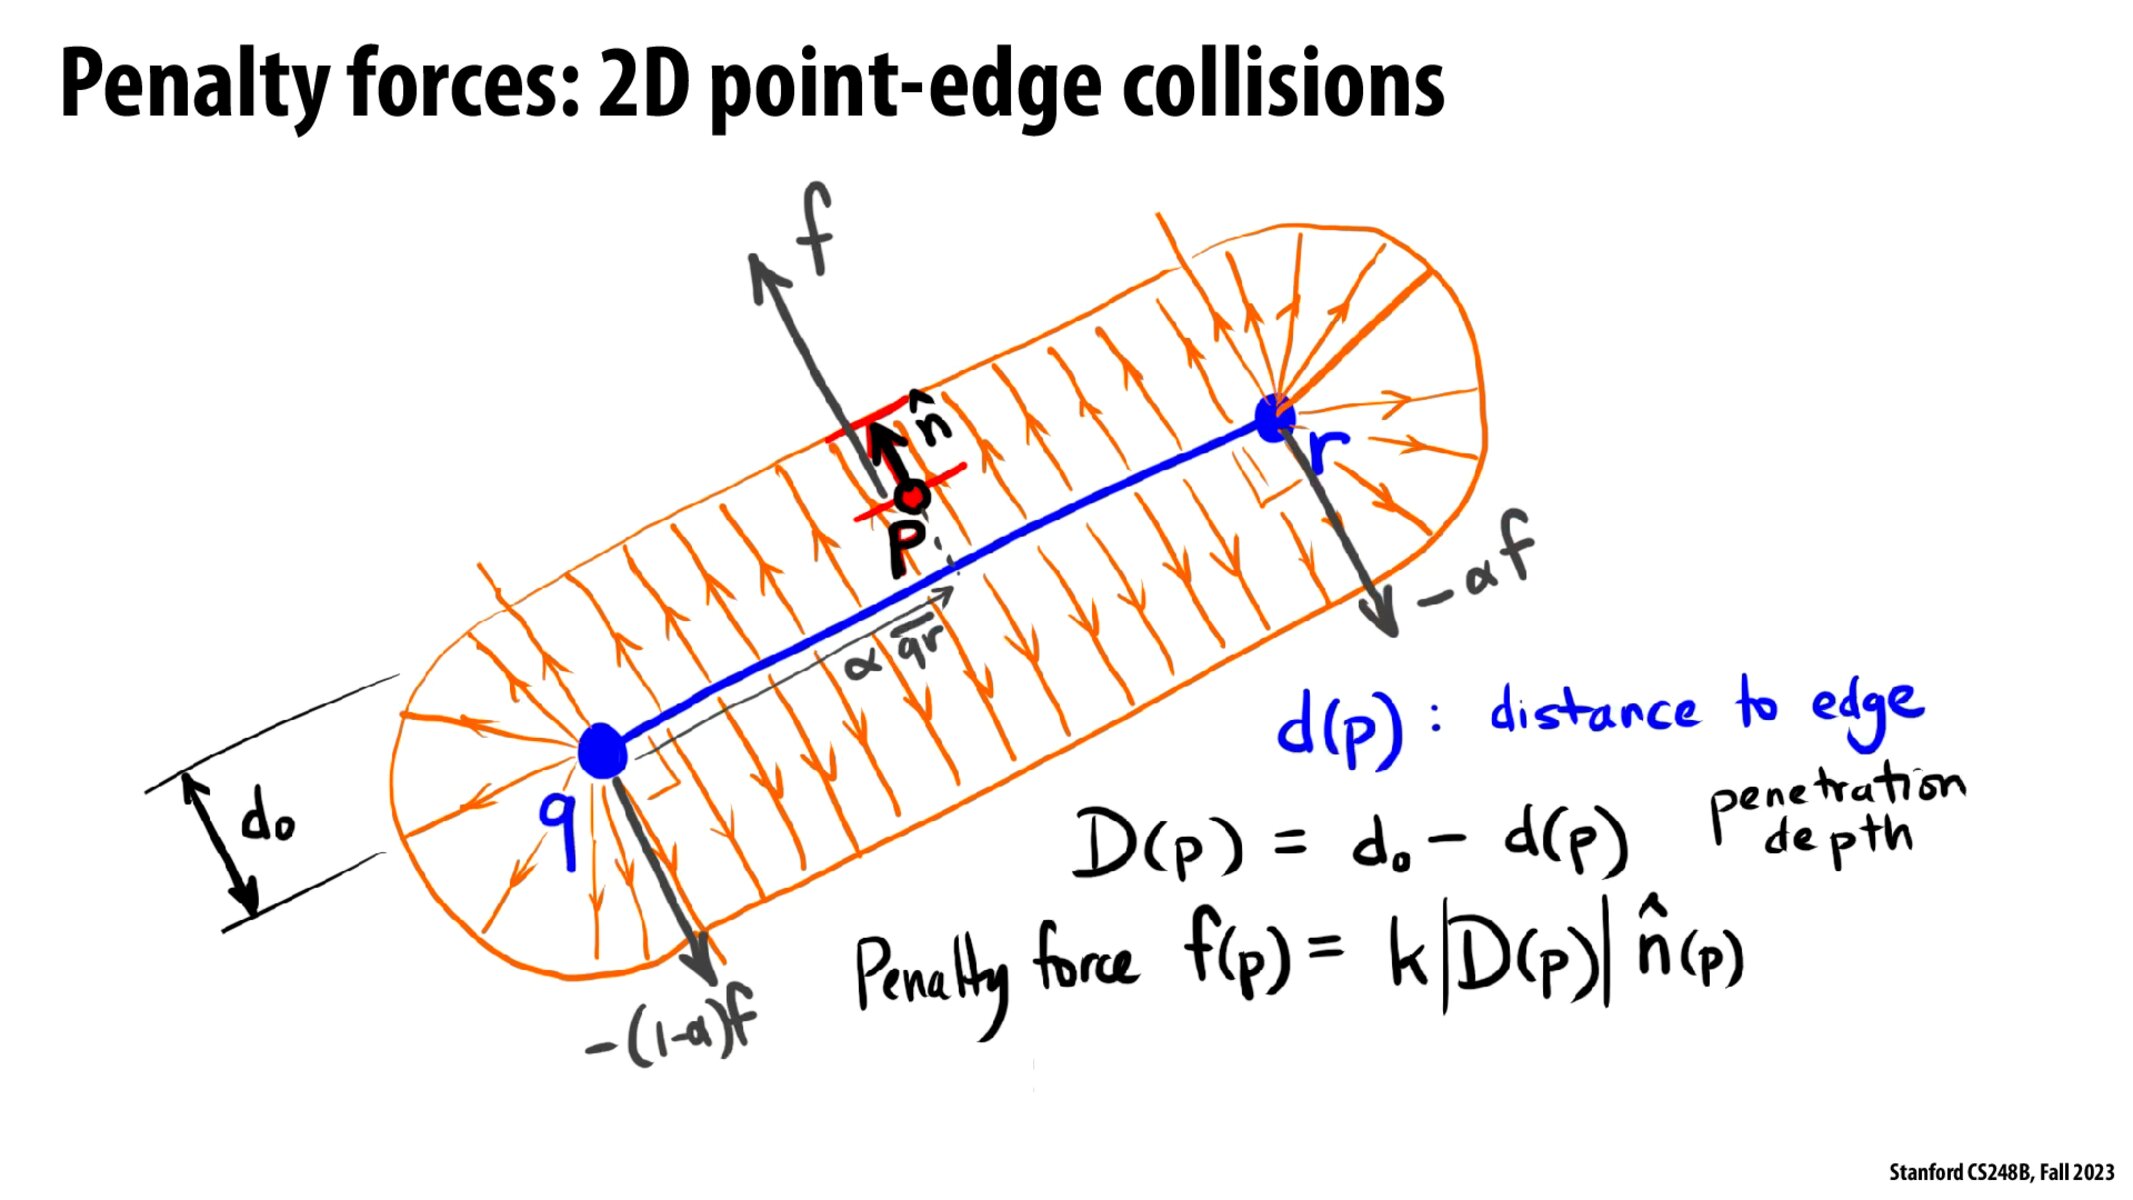 Penalty forces: 2D point-edge collisions
f
n̂
p
r
-αf
α q̅r̅
q
d₀
-(1-α)f
d(p): distance to edge
D(p) = d₀ - d(p) penetration depth
Penalty force f(p) = k|D(p)| n̂(p)
Stanford CS248B, Fall 2023